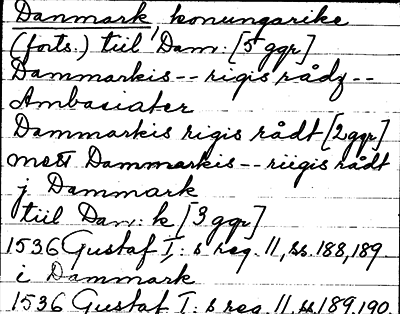 Danmark, konungarike
(forts.) tiil Dam: [5 ggr]
Dammarkis -- rigis rådz --
Ambasiater
Dammarkis rigis rådt [2 ggr]
mett Dammarkis -- riigis rådt
j Dammark
tiil Dan: k [3 ggr]
1536 Gustaf I:s reg. 11, ss. 188, 189.
i Dammark
1536 Gustaf I:s reg. 11, ss. 189, 190.